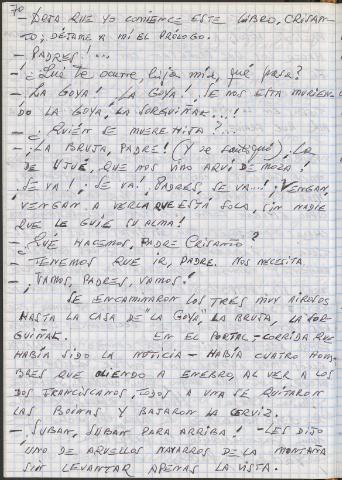 70
- DEJA QUE YO COMIENCE ESTE LIBRO, CRISAN-
TO; DÉJAME A MÍ EL PRÓLOGO.
- PADRES!...
- ¿Qué te ocurre, hija mía, qué pasa?
- ¡LA GOYA! ¡LA GOYA! ¡SE NOS ESTA MURIEN-
DO LA GOYA, LA SORGUIÑAK...!
- ¿QUIÉN SE MUERE HIJA?...
- ¡LA BRUJA, PADRE! (Y se santiguó) ¡LA
DE UJUÉ, QUE NOS VINO AQUÍ DE MOZA!
¡SE VA!, ¡SE VA!, PADRES, SE VA...! ¡VENGAN,
VENGAN A VERLA QUE ESTÁ SOLA, SIN NADIE
QUE LE GUIE SU ALMA!
- ¿QUÉ HACEMOS, PADRE CRISANTO?
- TENEMOS QUE IR, PADRE. NOS NECESITA
- ¡VAMOS, PADRES, VAMOS!
SE ENCAMINARON LOS TRES MUY AIROSOS
HASTA LA CASA DE "LA GOYA", LA BRUJA, LA SOR-
GUIÑAK. EN EL PORTAL - CORRIDA QUE
HABÍA SIDO LA NOTICIA - HABÍA CUATRO HOM-
BRES QUE OLIENDO A ENEBRO, AL VER A LOS
DOS FRANCISCANOS, TODOS A UNA SE QUITARON
LAS BOINAS Y BAJARON LA CERVIZ.
- ¡SUBAN, SUBAN PARA ARRIBA! - LES DIJO
UNO DE AQUELLOS NAVARROS DE LA MONTAÑA
SIN LEVANTAR APENAS LA VISTA.